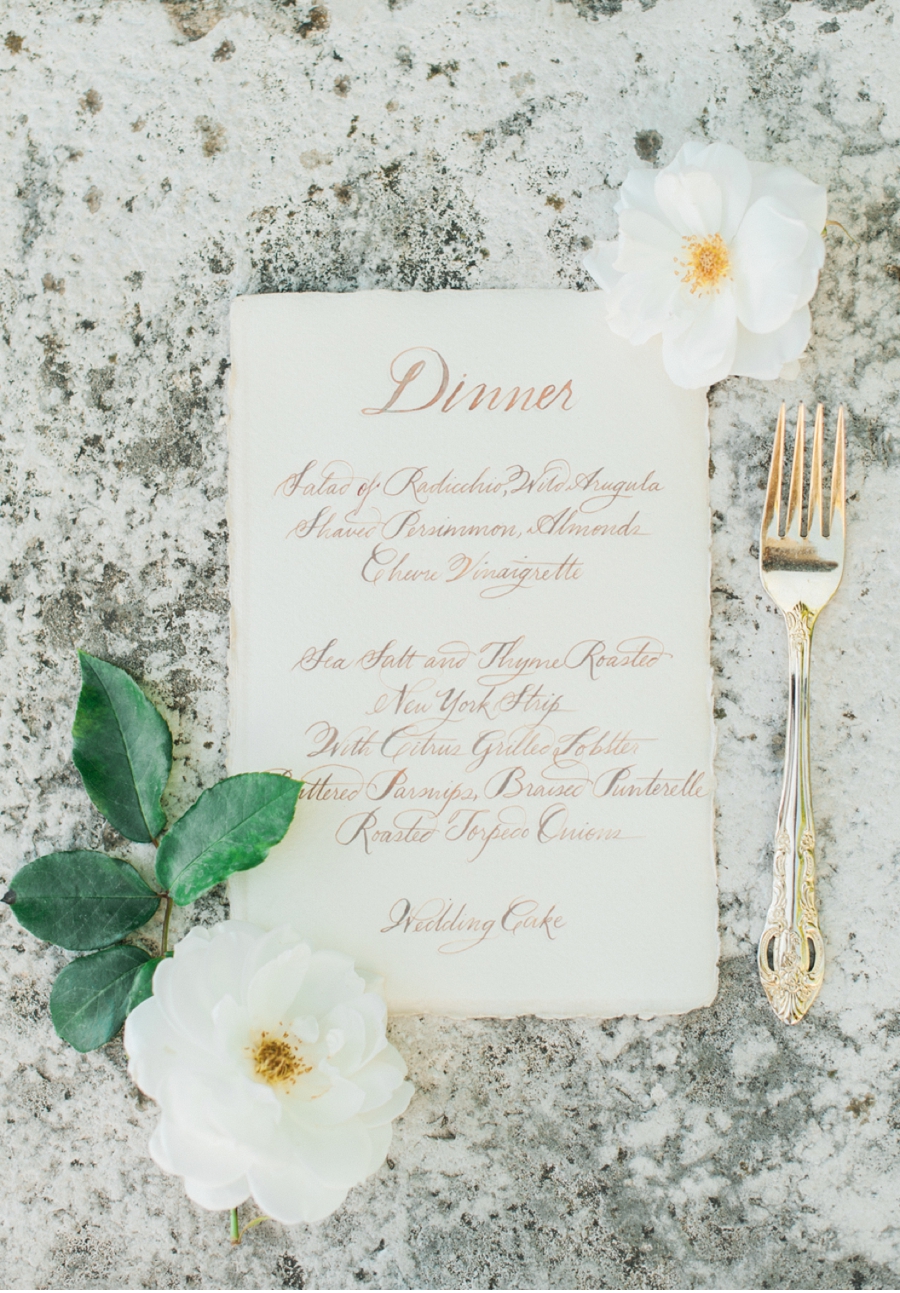 Dinner
Salad of Radicchio, Wild Arugula
Shaved Persimmon, Almonds
Chevre Vinaigrette
Sea Salt and Thyme Roasted
New York Strip
With Citrus Grilled Lobster
Buttered Parsnips, Braised Punterelle
Roasted Torpedo Onions
Wedding Cake